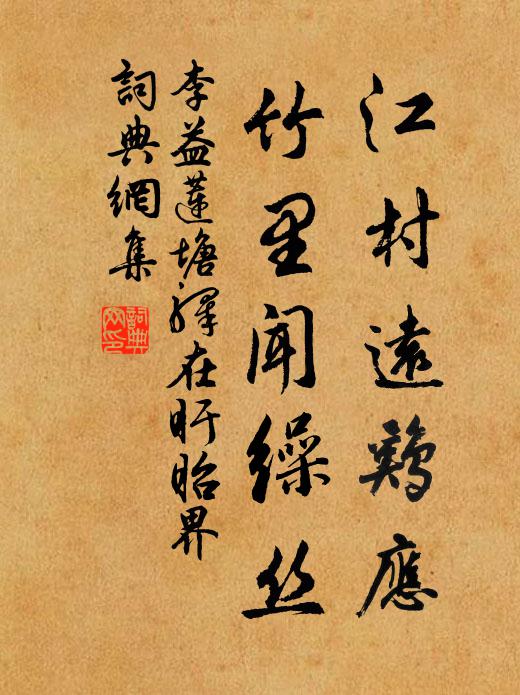 江村遠鷄應
竹里聞繰丝
李益蓮塘驛在盱眙界
詞典網集
詞典網印